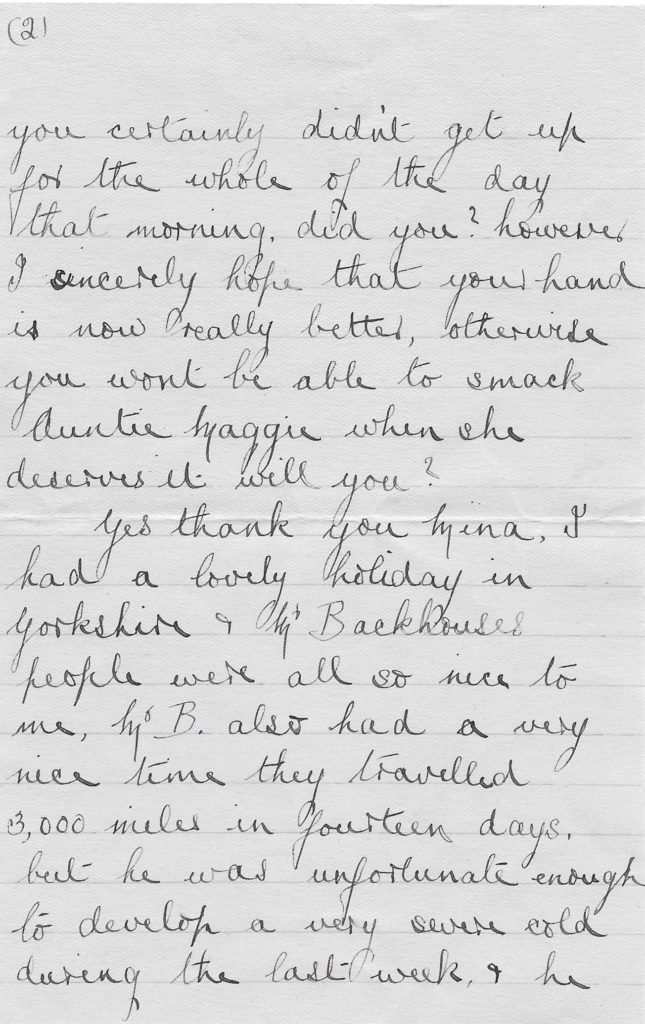 (2)
you certainly didn't get up
for the whole of the day
that morning, did you? however
I sincerely hope that your hand
is now really better, otherwise
you wont be able to smack
Auntie Maggie when she
deserves it will you?
Yes thank you Mina, I
had a lovely holiday in
Yorkshire & Mr Backhouses
people were all so nice to
me, Mr B. also had a very
nice time they travelled
3,000 miles in fourteen days,
but he was unfortunate enough
to develop a very severe cold
during the last week, & he